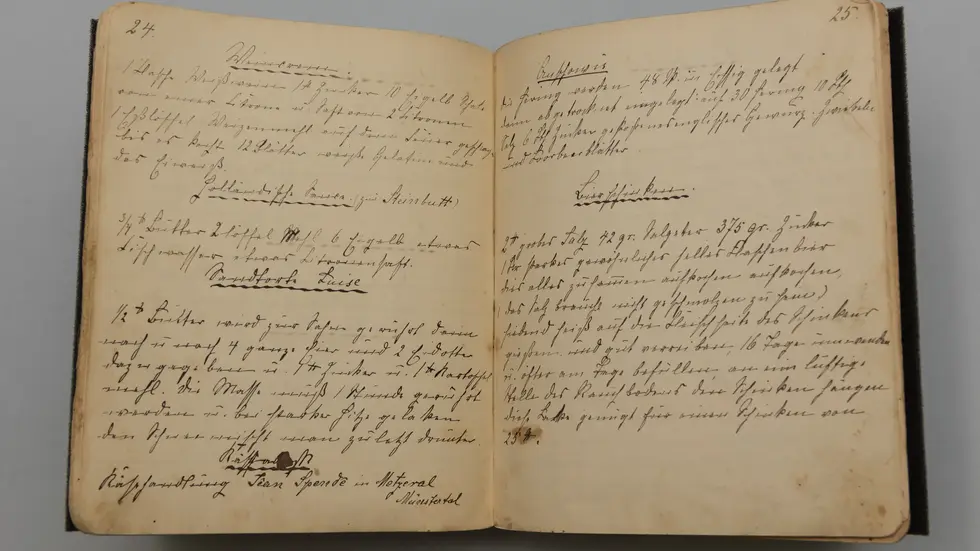 24.
Weincreme
1 Flasche Weißwein 1 ℔ Zucker 10 Eigelb Schale
von einer Citrone u. Saft von 2 Citronen
1 Eßlöffel Weizenmehl auf dem Feuer geschlagen
bis es kocht 12 Blätter weiße Gelatine und
das Eiweiß.
Holländische Sauce. (zu Steinbutt)
3/4 ℔ Butter 2 Löffel Mehl 6 Eigelb etwas
Fischwasser etwas Citronensaft.
Sandtorte Luise
1/2 ℔ Butter wird zur Sahne gerührt dann
nach u nach 4 ganze Eier und 2 Eidotter
dazu gegeben u. 1 ℔ Zucker u. 1 ℔ Kartoffel
mehl. Die Masse muß 1 Stunde gerührt
werden u. bei starker Hitze gebacken
den Schnee mischt man zuletzt darunter.
Käsehandlung Jean Spende in Metzeral
Münstertal
25.
die Hering werden 48 St. in Essig gelegt
dann abgetrocknet eingelegt: auf 30 Hering 10 Pf.
Salz 6 Pf. Zucker gestoßenes englisches Gewürz. Zwiebeln
und Lorbeerblätter.
Bierschinken.
2 ℔ gutes Salz 42 gr. Salpeter 375 gr. Zucker
1 Ltr starkes gewöhnliches helles Flaschenbier
dies alles zusammen aufkochen aufkochen,
(das Salz braucht nicht geschmolzen zu sein)
siedend heiß auf die Fleischseite des Schinkens
gießen und gut verreiben, 16 Tage umwenden
u. öfter am Tage befüllen an eine luftige
Stelle des Rauchbodens den Schinken hängen
diese Lake genügt für einen Schinken von
25 ℔.